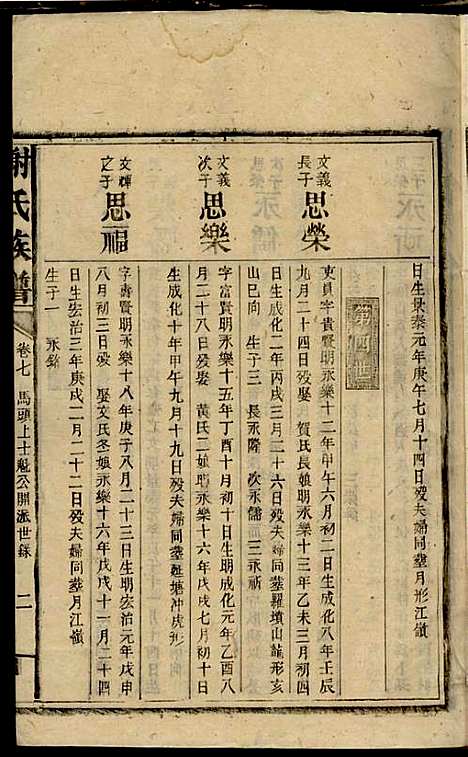 日生景泰元年庚午七月十四日歿夫婦同葬月形江嶺
第四世
文義長子 思榮
吏員字貴明永樂十二年甲午六月初二日生成化八年壬辰
九月二十四日歿娶 賀氏長娘明永樂十三年乙未三月初四
日生成化二年丙戌三月二十六日歿夫婦同葬羅墳山龍形亥
山巳向 生子三 長永隆 次永儒 三永祈
文義次子 思樂
字富賢明永樂十五年丁酉十月初十日生明成化元年乙酉八
月二十八日歿娶 黃氏二娘明永樂十六年戊戌七月初十日
生成化十年甲午九月十九日歿夫婦同葬 塘冲虎形
文禪之子 思福
字壽賢明永樂十八年庚子八月二十三日生明宏治元年戊申
八月初三日歿 娶文氏冬娘永樂十六年戊戌十一月二十四
日生宏治三年庚戌二月二十二日歿夫婦同葬月江嶺
生子一 永銘
謝氏族譜 卷七 馬頭上士魁公開派世錄 二